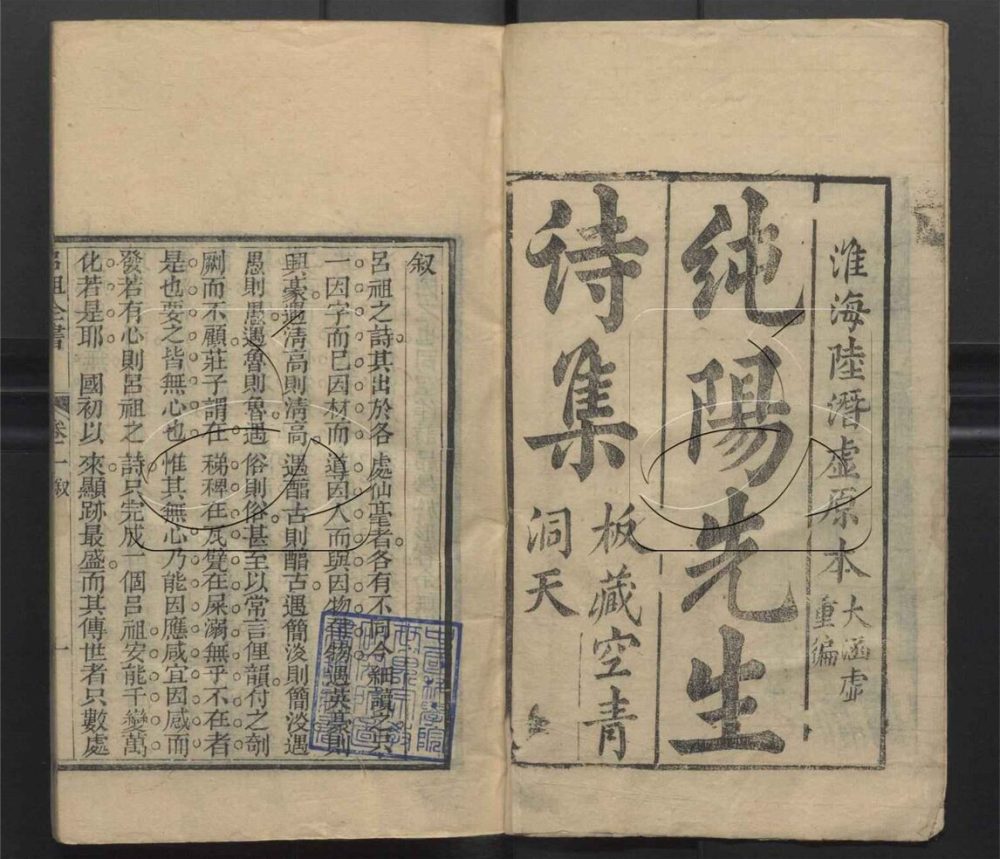 淮海陸潛虛原本
大涵虛
重編
純陽先生
诗集
板藏空青
洞天
叙
呂祖之詩其出於各處仙乩者各有不同今細讀之只
一因字而已因材而導因人而與因物
興豪遇清高則清高遇酯古則酯古遇簡淡則簡淡遇
愚則愚遇魯則魯遇俗則俗甚至以常言俚韻付之剞
劂而不顧莊子謂在稊稗在瓦甓在屎溺無乎不在者
是也要之皆無心也惟其無心乃能因應咸宜因感而
發若有心則呂祖之詩只完成一個呂祖安能千變萬
化若是耶國初以來顯跡最盛而其傳世者只數處
呂祖全書
卷一叙
一